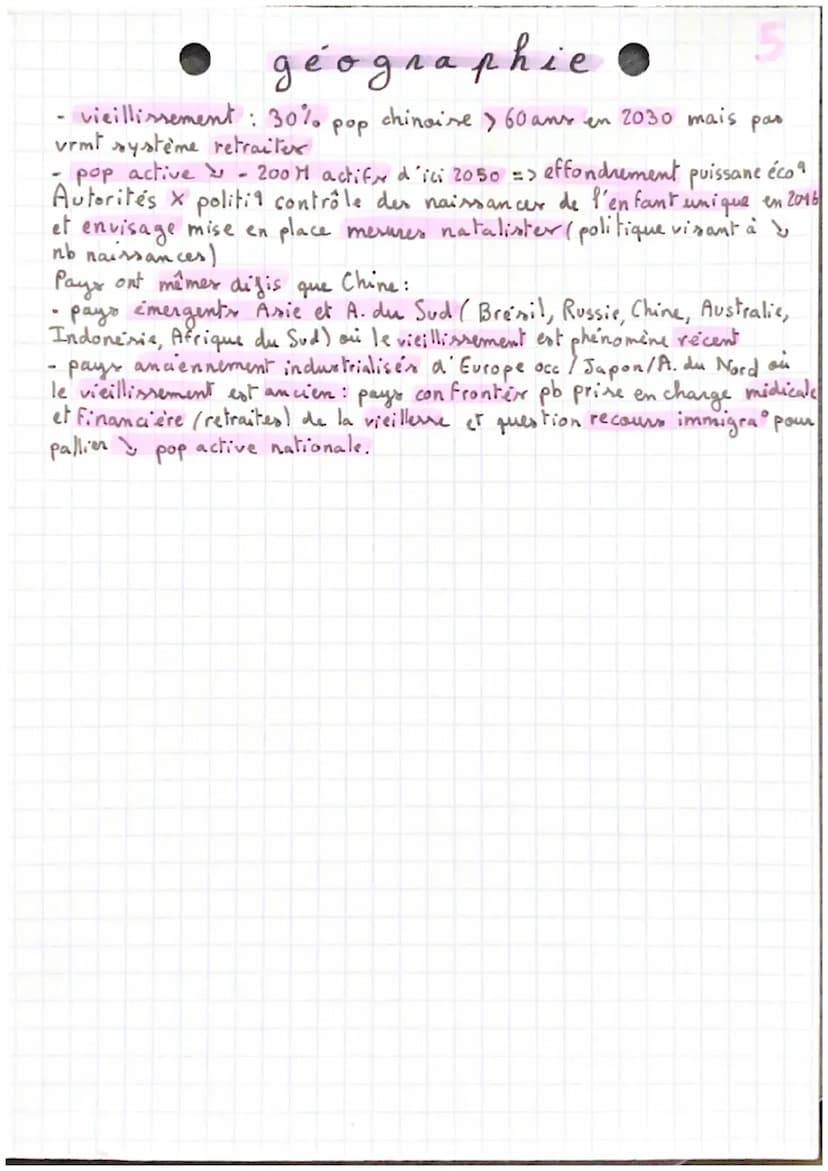 5
géographie
- vieillissement : 30% pop chinoise > 60 ans en 2030 mais pas
vrmt système retraites
- pop active ↘ - 200 M actifs d'ici 2050 => effondrement puissance éco
Autorités X politiq contrôle des naissances de l'enfant unique en 2016
et envisage mise en place mesures natalistes (politique visant à ↘
nb naissances)
Pays ont mêmes défis que Chine :
- pays émergents Asie et A. du Sud (Brésil, Russie, Chine, Australie,
Indonésie, Afrique du Sud) où le vieillissement est phénomène récent
- pays anciennement industrialisés d'Europe occ / Japon/A. du Nord où
le vieillissement est ancien : pays confrontés pb prise en charge médicale
et financière (retraites) de la vieillesse et question recours immigra° pour
pallier ↘ pop active nationale.